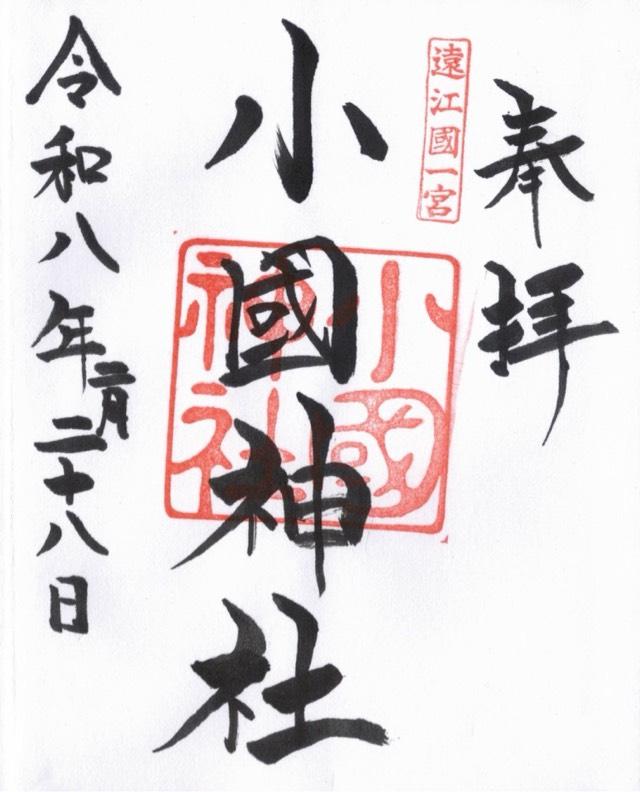 奉拝
遠江國一宮
小國神社
小國神社
令和八年二月二十八日